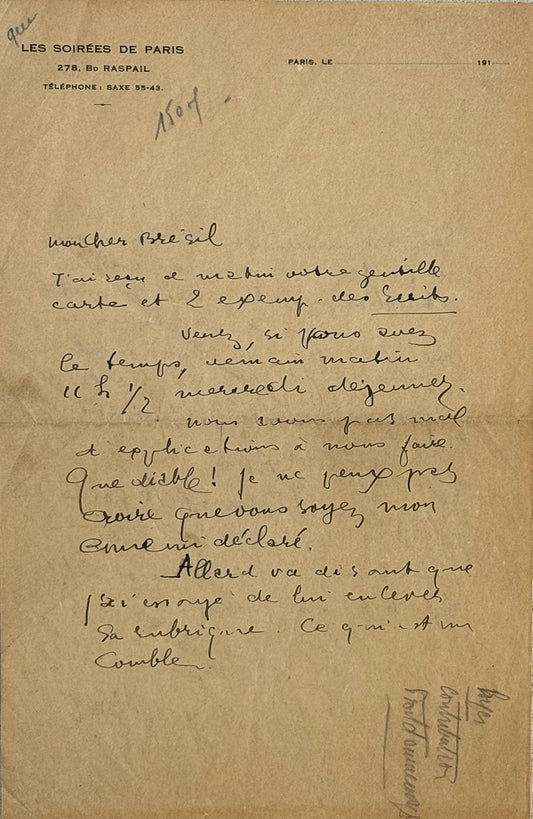 LES SOIRÉES DE PARIS
278, BD RASPAIL
TÉLÉPHONE : SAXE 55-43.
PARIS, LE 191
150 f
mon Cher Brésil
J'ai reçu ce matin votre gentille
carte et 2 exemp. des Ecrits.
Venez, si vous avez
le temps, demain matin
11 h 1/2 mercredi déjeuner.
nous avons pas mal
d'explications à nous faire.
Que diable ! Je ne peux pas
croire que vous soyez mon
ennemi déclaré.
Allard va disant que
j'ai essayé de lui enlever
sa rubrique. Ce qui est un
comble.
Payer
contribution